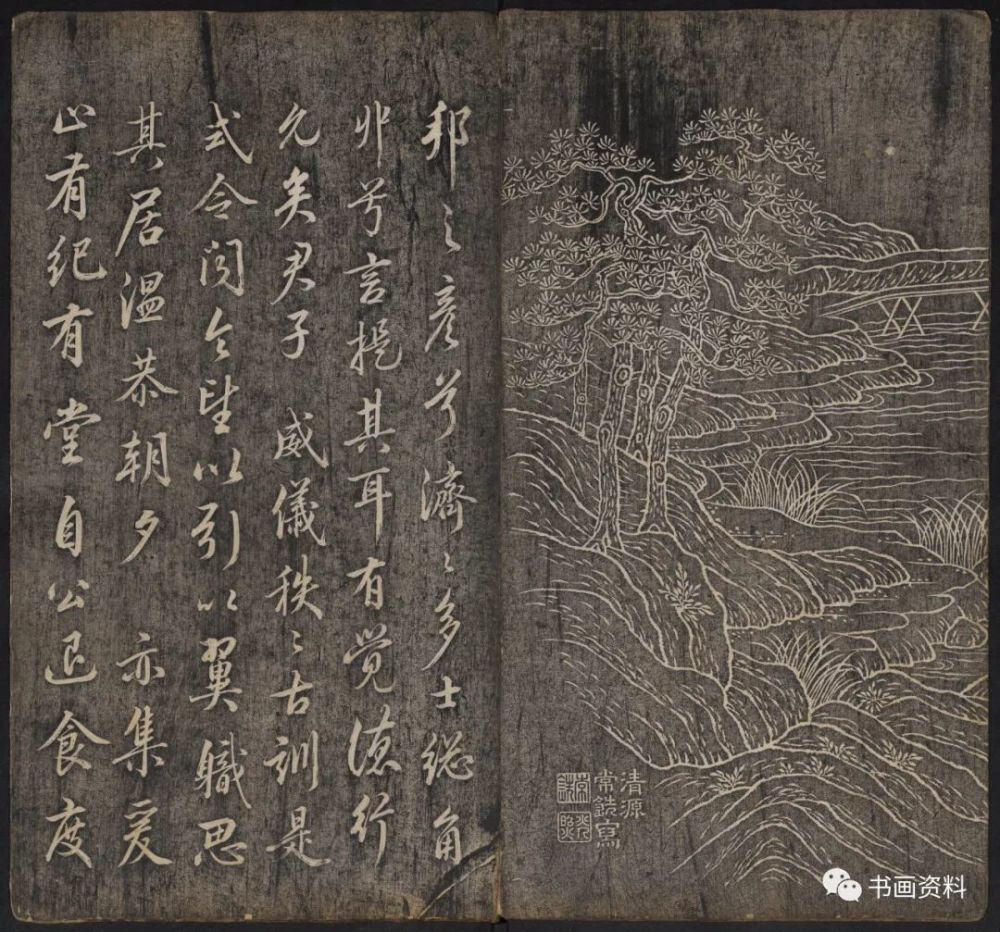 清源
常寫
邦之彦兮濟々多士総角
丱兮言提其耳有覺德行
允矣君子威儀秩々古訓是
式令聞令望以引以翼職思
其居温恭朝夕亦集爰
止有紀有堂自公退食度
书画资料